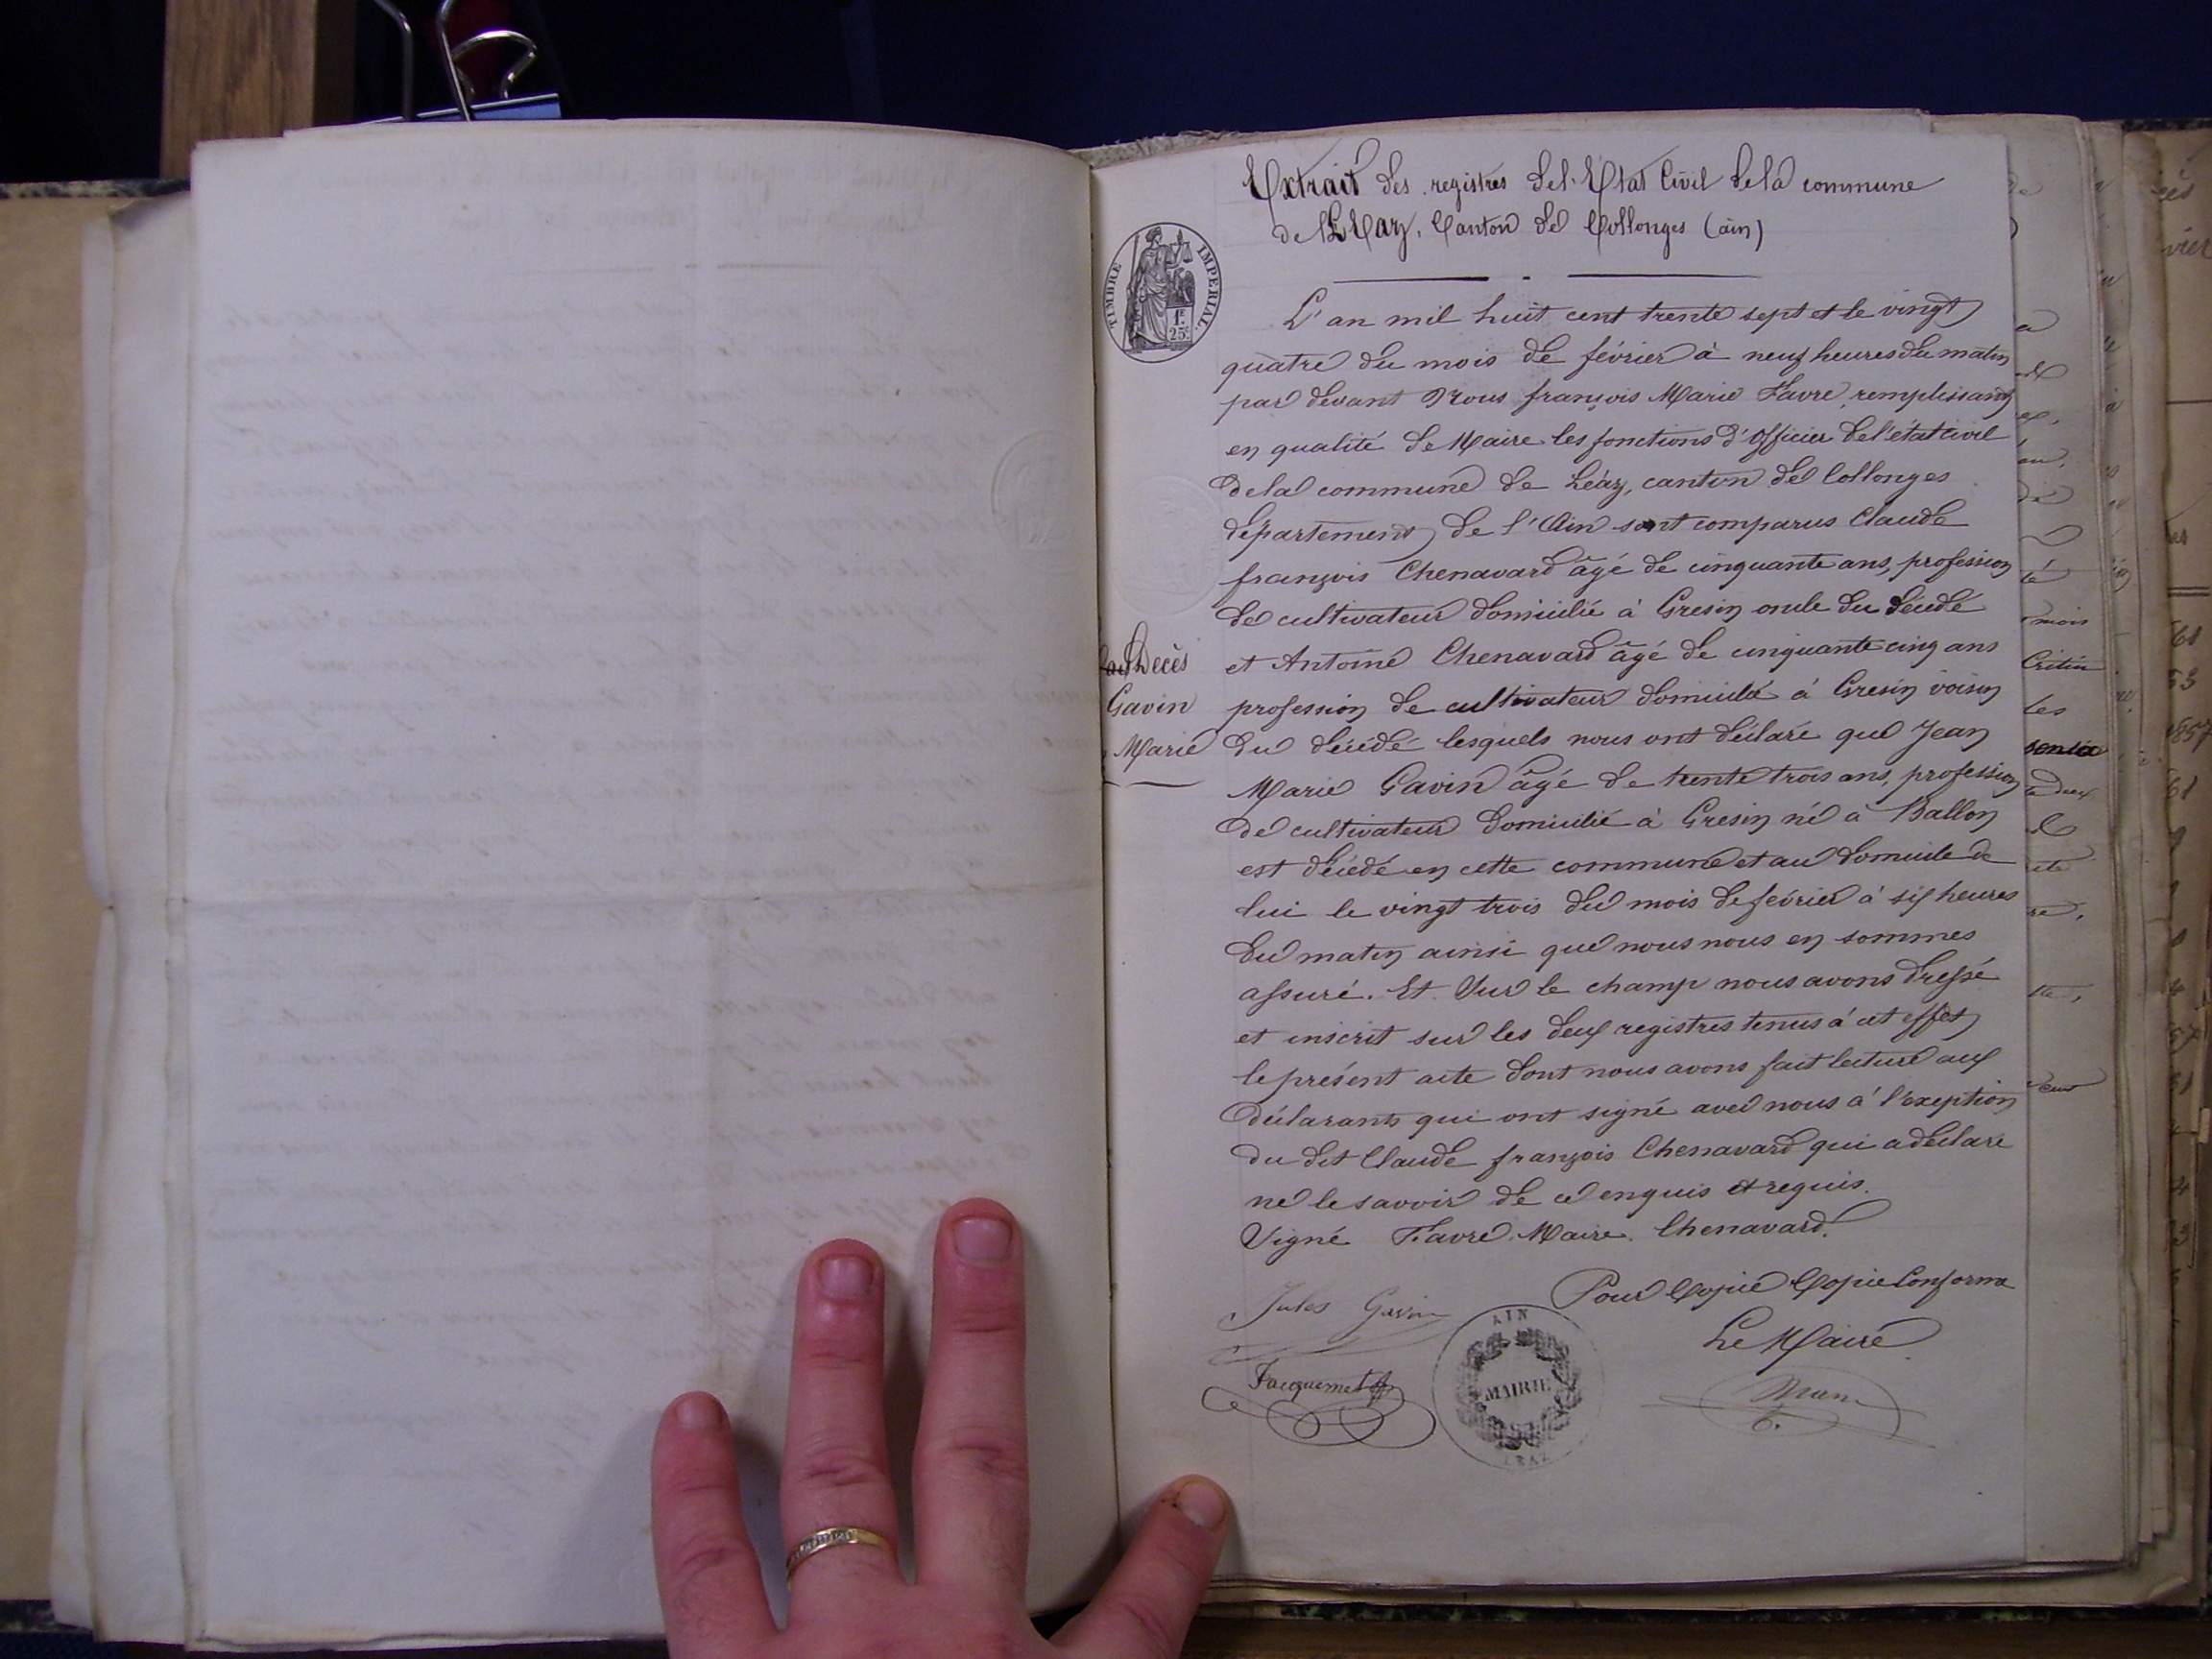 Extrait des registres de l'Etat Civil de la commune
de Léaz, Canton de Collonges (ain)
TIMBRE IMPERIAL
1F.
25c
L'an mil huit cent trente sept et le vingt
quatre du mois de février à neuf heures du matin
par devant Nous françois Marie Favre, remplissant
en qualité de Maire les fonctions d'officier de l'état civil
de la commune de Léaz, canton de Collonges
département de l'Ain sont comparus Claude
françois Chenavard âgé de cinquante ans, profession
de cultivateur domicilié à Gresin oncle du décédé
et Antoine Chenavard âgé de cinquante cinq ans
profession de cultivateur domicilié à Gresin voisin
du décédé lesquels nous ont déclaré que Jean
Marie Gavin âgé de trente trois ans, profession
de cultivateur domicilié à Gresin né à Ballon
est décédé en cette commune et au domicile de
lui le vingt trois du mois de février à six heures
du matin ainsi que nous nous en sommes
assuré. Et Sur le champ nous avons dressé
et inscrit sur les deux registres tenus à cet effet
le présent acte dont nous avons fait lecture aux
déclarants qui ont signé avec nous à l'exeption
du dit Claude françois Chenavard qui a déclaré
ne le savoir de ce enquis et requis.
Signé Favre Maire. Chenavard.
Décès
Gavin
Marie
Pour Copie Copie Conforme
Le Maire
Jules Gavin
Jacquemet
AIN
MAIRIE